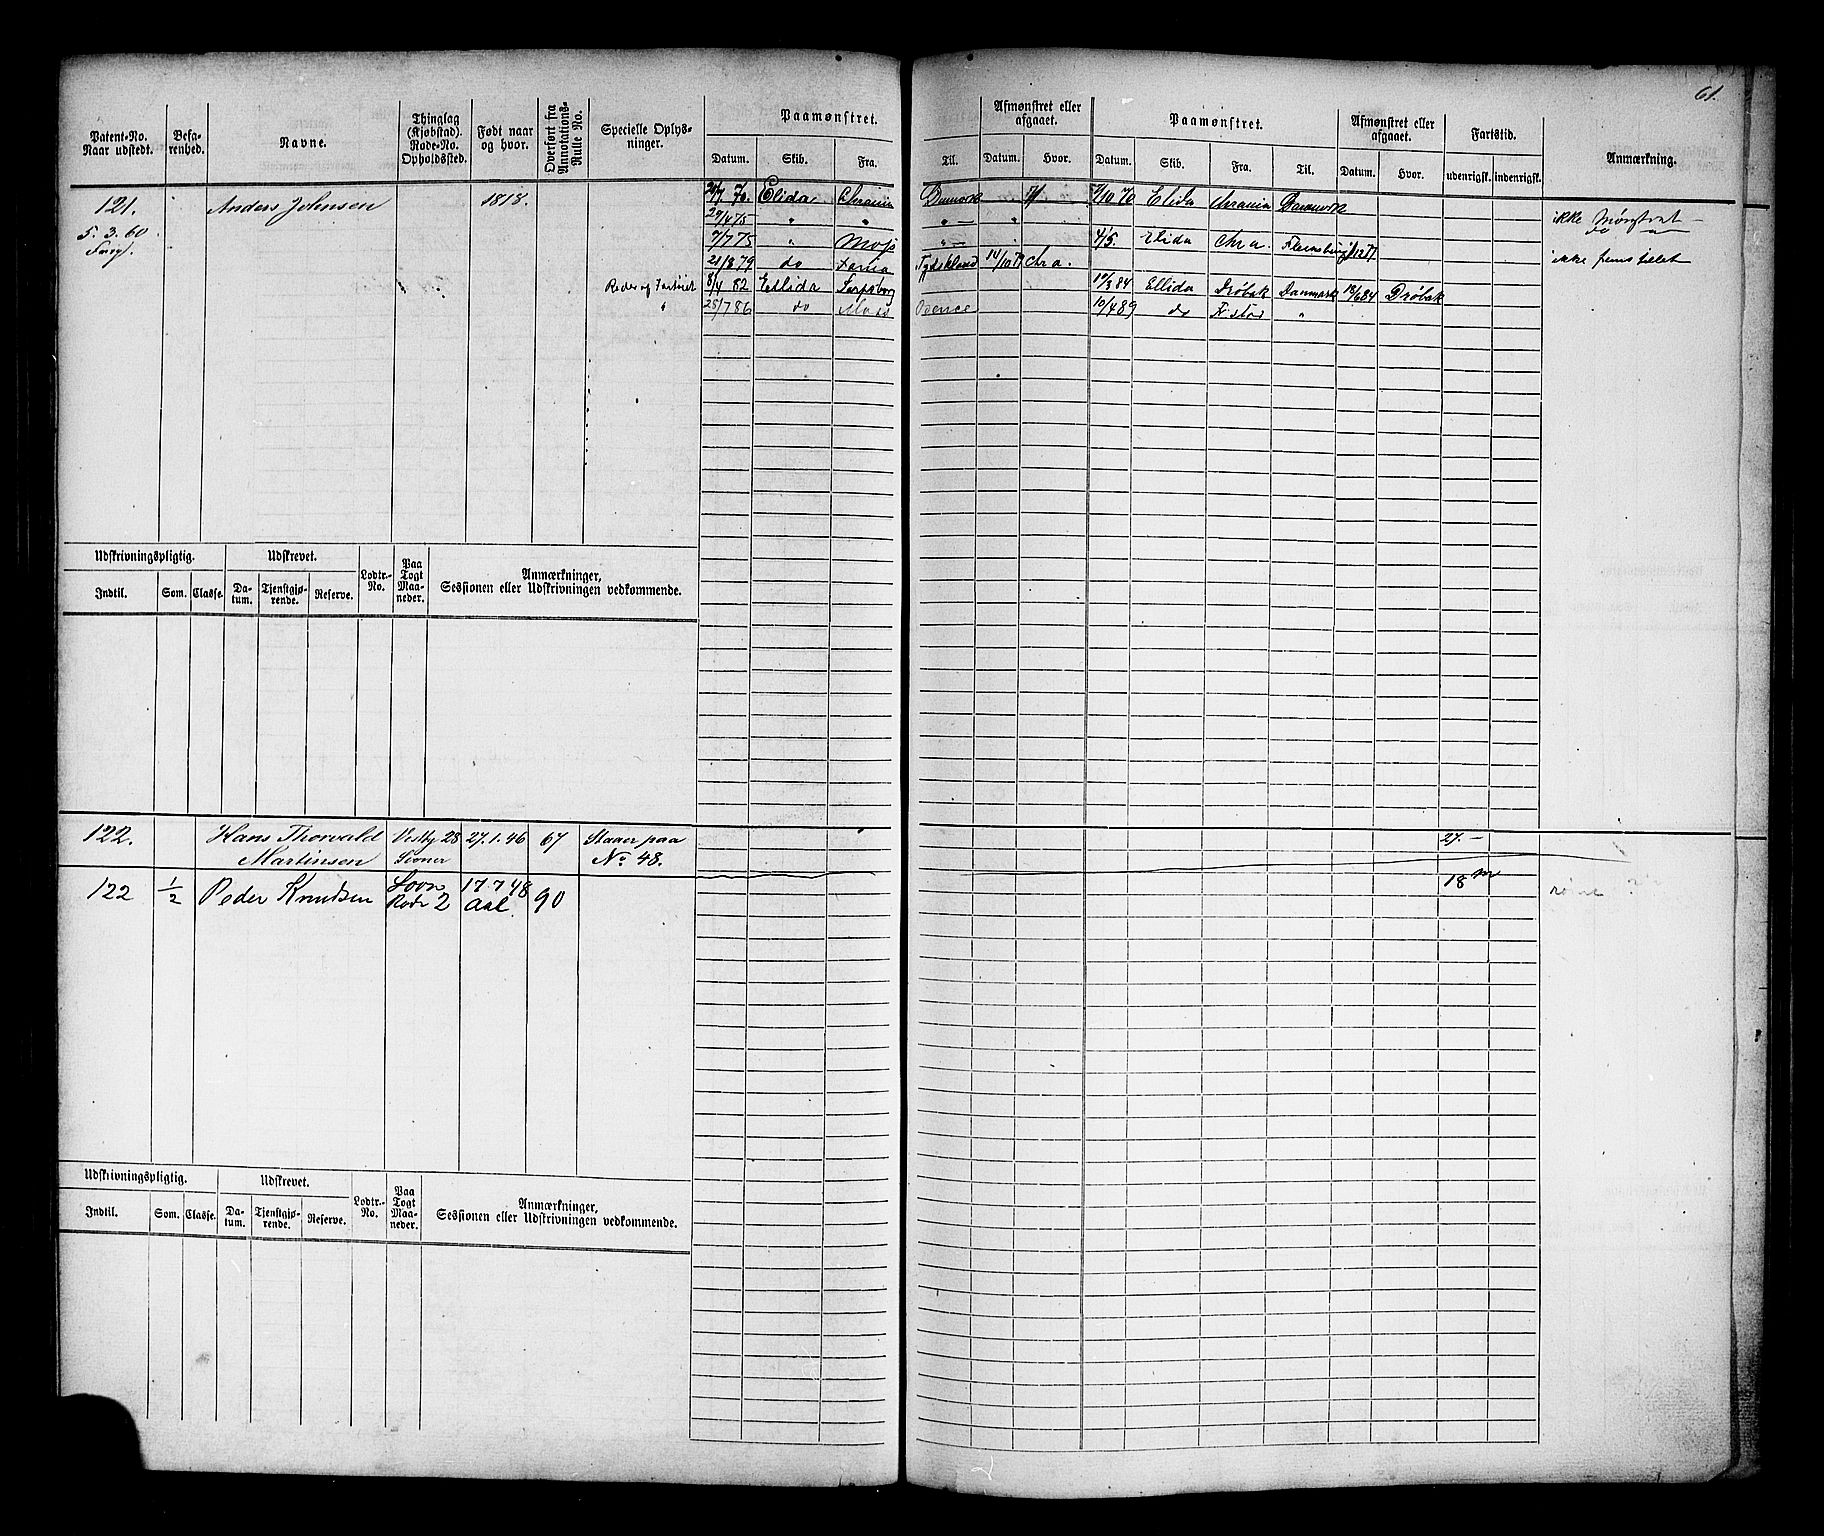 61.
Patent-No. Naar udstedt. Befa-renhed. Navne. Thinglag (Kjøbstad). Rode-No. Opholdssted. Født naar og hvor. Overført fra Annotations-Rulle No. Specielle Oplys-ninger. Paamønstret. Datum. Skib. Fra. Til. Afmønstret eller afgaaet. Datum. Hvor. Paamønstret. Datum. Skib. Fra. Til. Afmønstret eller afgaaet. Datum. Hvor. Fartstid. udenrigsk. indenrigsk. Anmærkning.
121. Anders Johnsen 1818. Elida Chrania Danmark 70 Elida Chrania Danmark
5.3.60 29/4 75 " " " " ikke Mønstret
7/7 75 " Moss " 4/5 Elida Chra. Flensburg
21/8 79 do Tydskland 14/10 Chra. ikke
Reder af Fartøiet 8/4 82 Ellida Sarpsborg 84 Ellida Drøbak Danmark 18/6 84 Drøbak
" 25/7 86 do Moss 10/4 89 do Fr.stad "
Udskrivningspligtig. Udskrevet. Lodtr.-No. Paa Togt Maa-neder. Anmærkninger, Sessionen eller Udskrivningen vedkommende.
Indtil. Som. Classe. Da-tum. Tjenstgjø-rende. Reserve.
122. Hans Thorvald Vestby 28 27.1.46 67 Staaer paa 27.-
Martinsen No 48.
122 1/2 Peder Knudsen 17 7 48 90 18 m
Rode 2 Aal.
Udskrivningspligtig. Udskrevet. Lodtr.-No. Paa Togt Maa-neder. Anmærkninger, Sessionen eller Udskrivningen vedkommende.
Indtil. Som. Classe. Da-tum. Tjenstgjø-rende. Reserve.